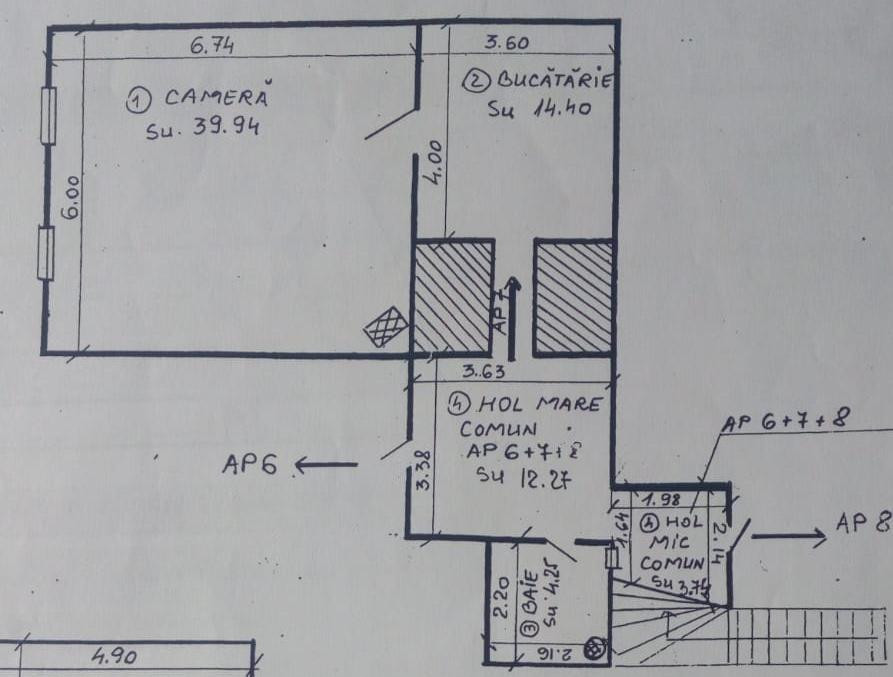 6.74
3.60
① CAMERĂ
Su. 39.94
② BUCĂTĂRIE
Su 14.40
6.00
4.00
AP 7
3.63
④ HOL MARE
COMUN
AP 6+7+8
Su 12.27
3.38
AP6
AP 6+7+8
1.98
1.64
④ HOL
MIC
COMUN
Su 3.74
2.14
AP 8
③ BAIE
Su 4.25
2.20
2.16
4.90